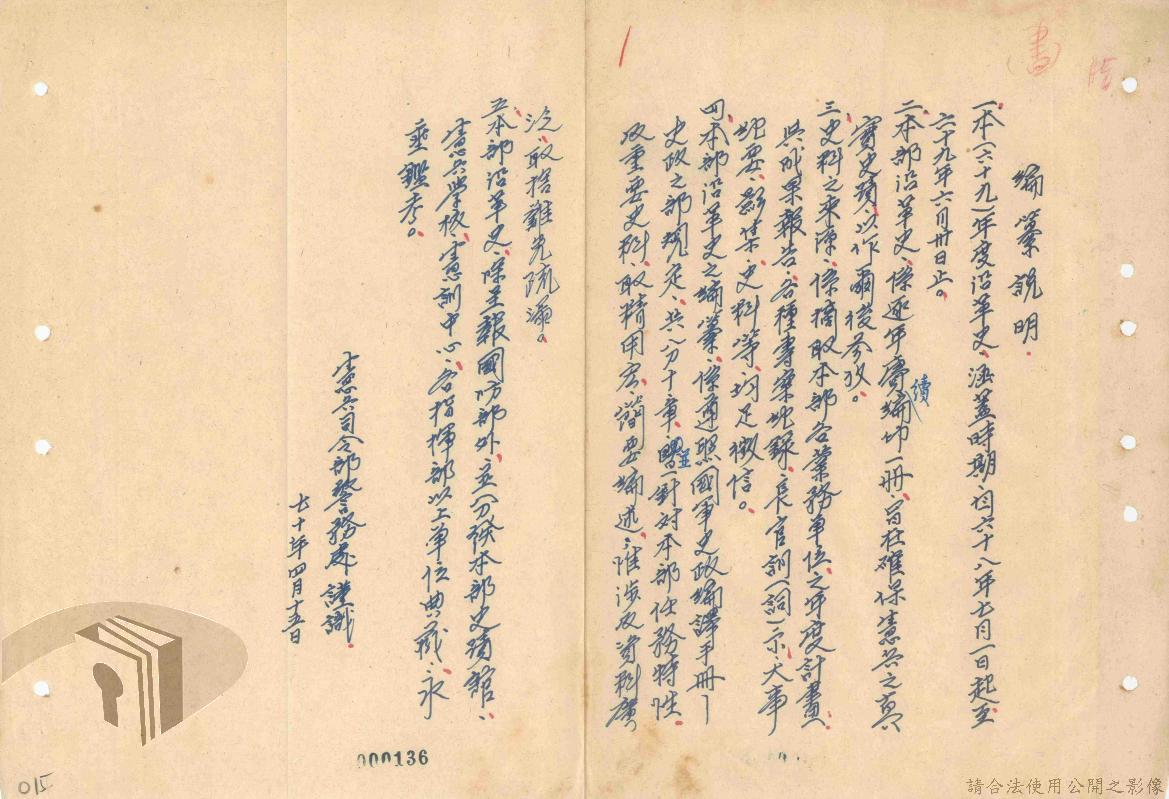 書
編纂說明.
一、本(六十九)年度沿革史、涵蓋時期、自六十八年七月一日起至
六十九年六月卅日止。
二、本部沿革史、係逐年賡續編印一冊、旨在確保憲兵之真
實史蹟、以作爾後參攷。
三、史料之來源、係摘取本部各業務單位、之年度計畫
與成果報告、各種專案紀錄、長官訓(詞)示、大事
紀要、影集、史料等、均足徵信。
四、本部沿革史之編纂、係遵照國軍史政編譯手冊﹁
史政之部規定、共分十章、並針對本部任務特性、
及重要史料、取精用宏、簡要編述、惟涉及資料廣
泛、取捨難免疏漏。
五、本部沿革史、除呈報國防部外、並分發本部史蹟館、
憲兵學校、憲訓中心、各指揮部以上單位典藏、永
垂鑑考。
憲兵司令部警務處謹識.
七十年四月十五日
000136
015
請合法使用公開之影像